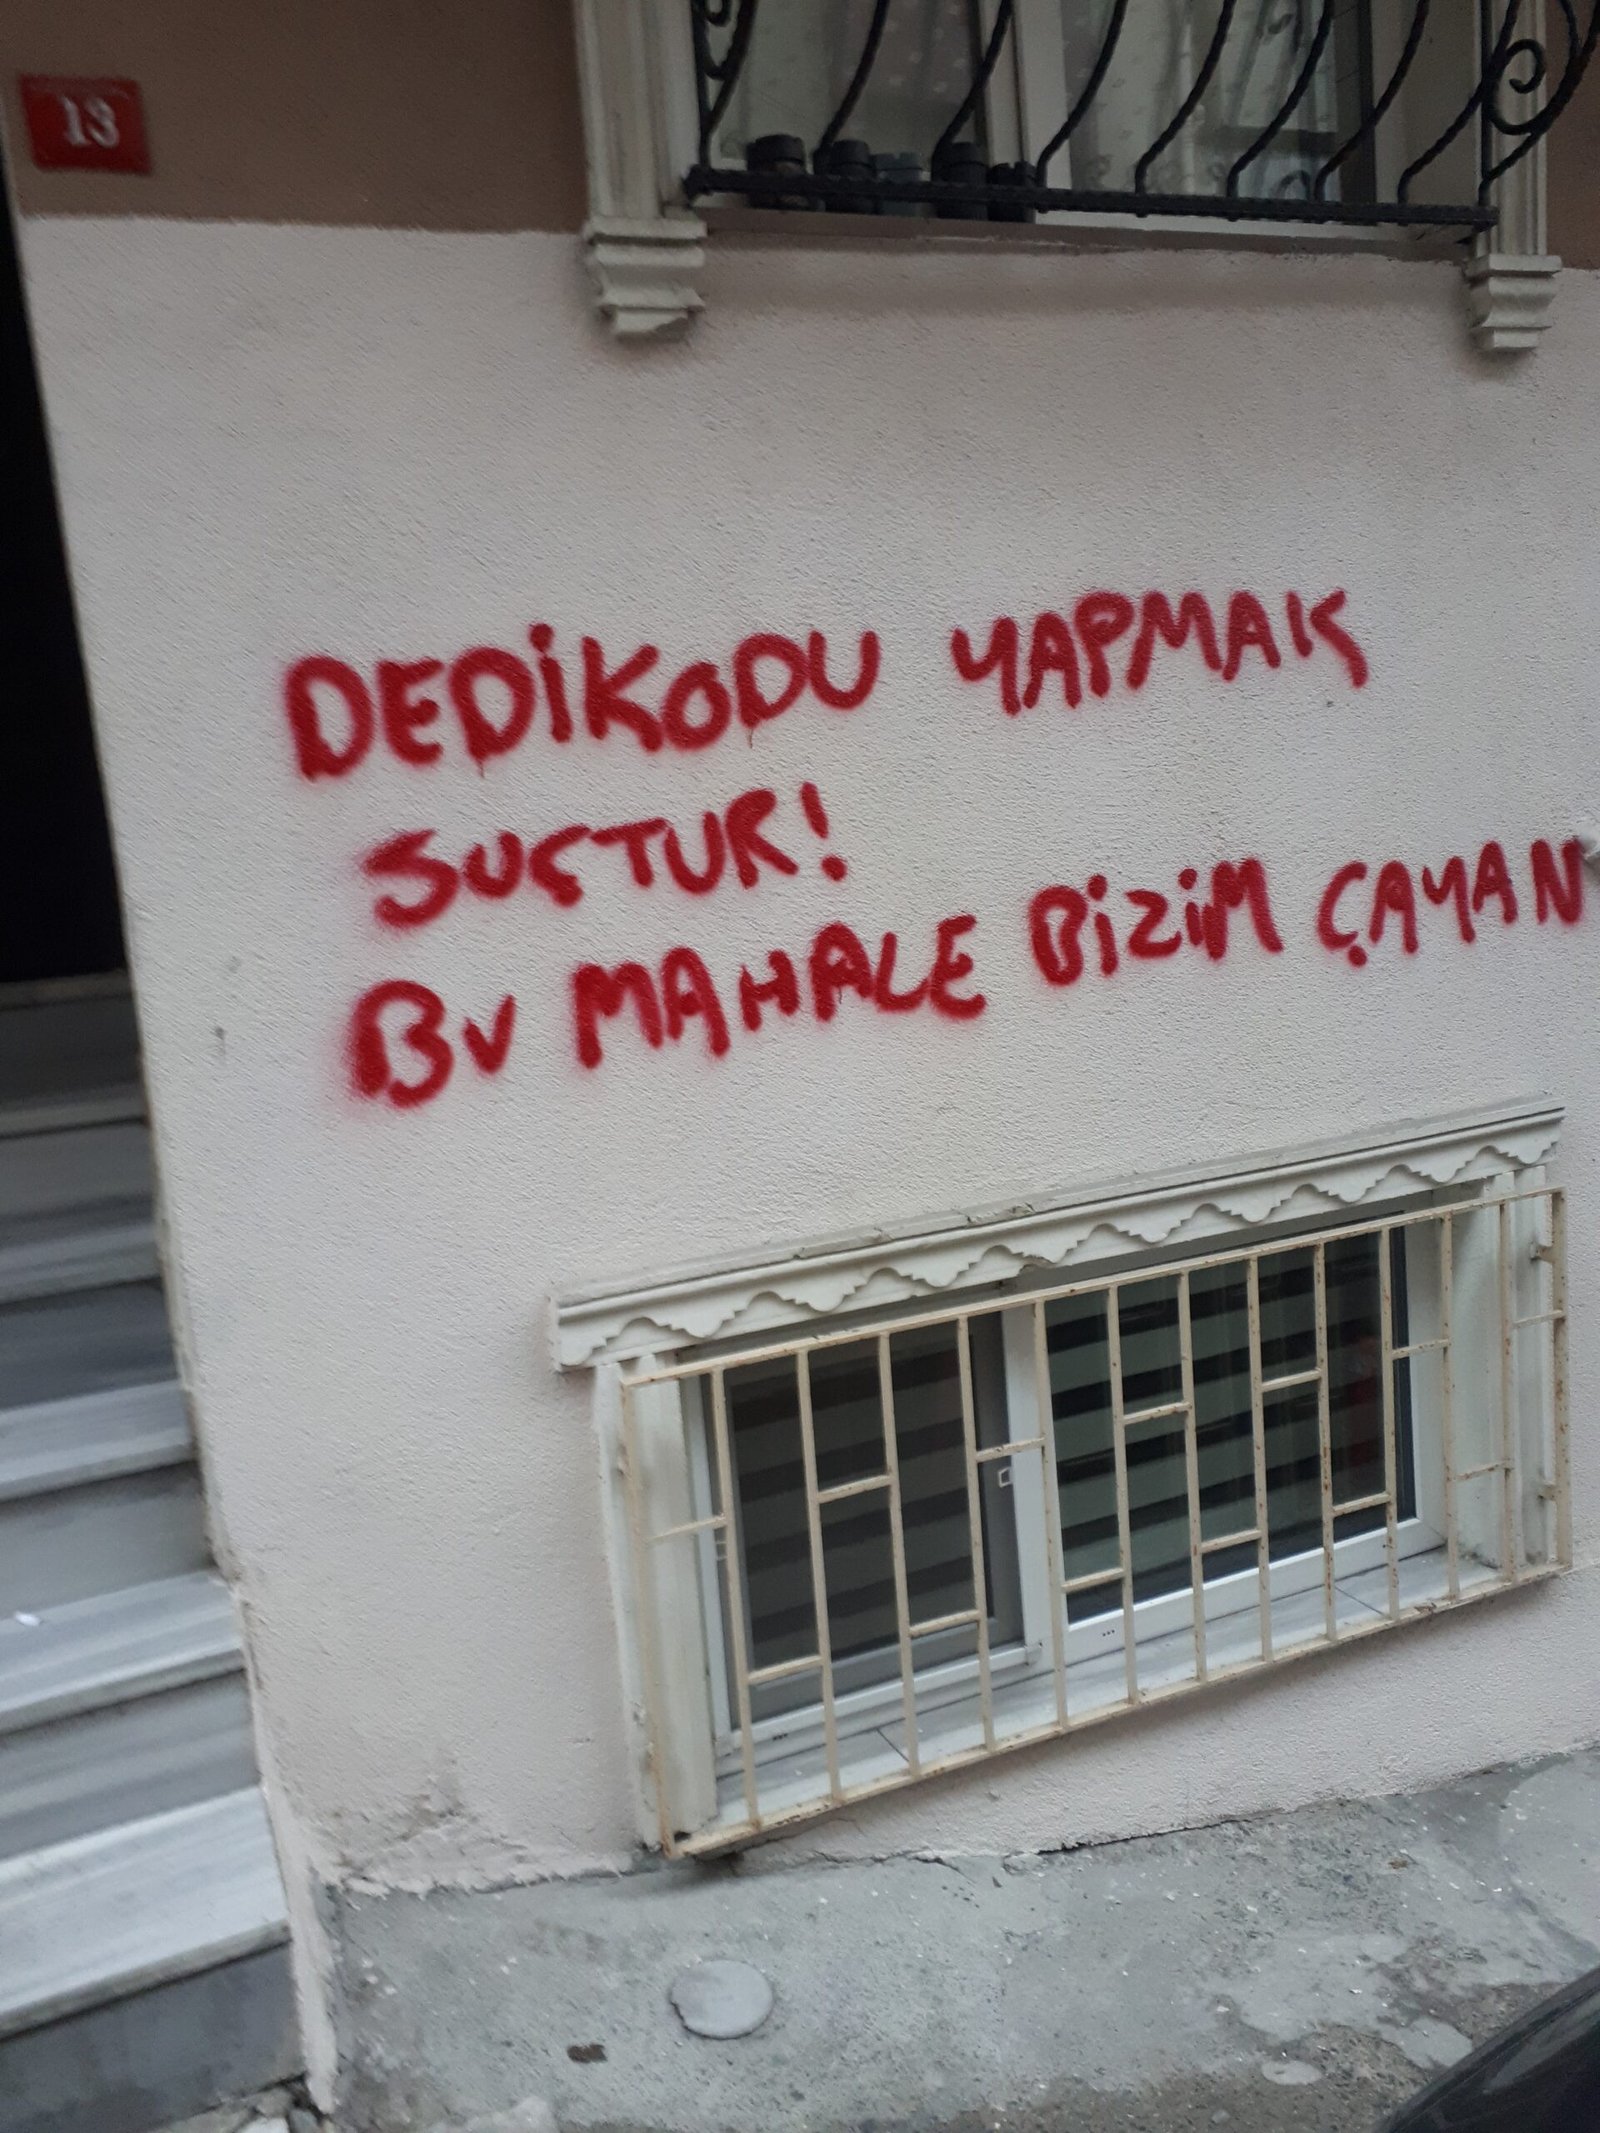 13
DEDİKODU YAPMAK
SUÇTUR!
BU MAHALE BİZİM ÇAYAN